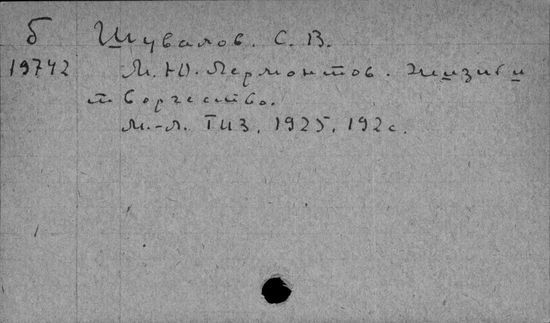 Б Шувалов. С. В.
19742 М. Ю. Лермонтов. Жизнь и
творчество.
М.-Л. ГИЗ, 1925, 192 с.